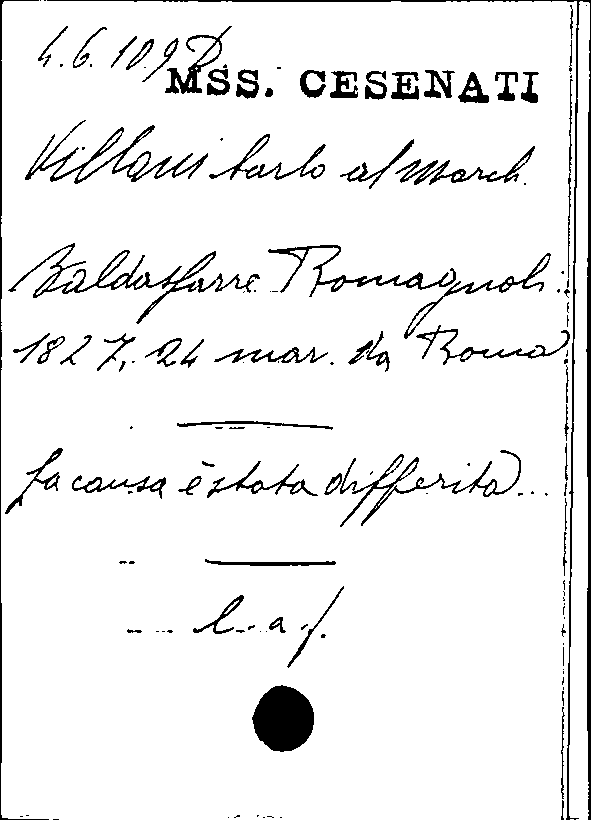 4.6.10.9 D
MSS. CESENATI
Villani Carlo al March.
Baldassarre Romagnoli:
1827, 24 mar. da Roma
La causa è stata differita...
l. a f.